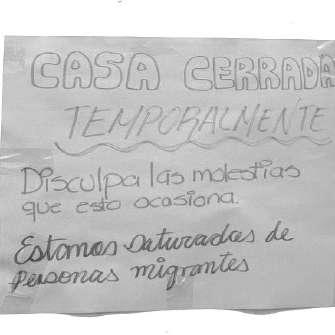 CASA CERRADA
TEMPORALMENTE
Disculpa las molestias
que esto ocasiona.
Estamos saturadas de
personas migrantes